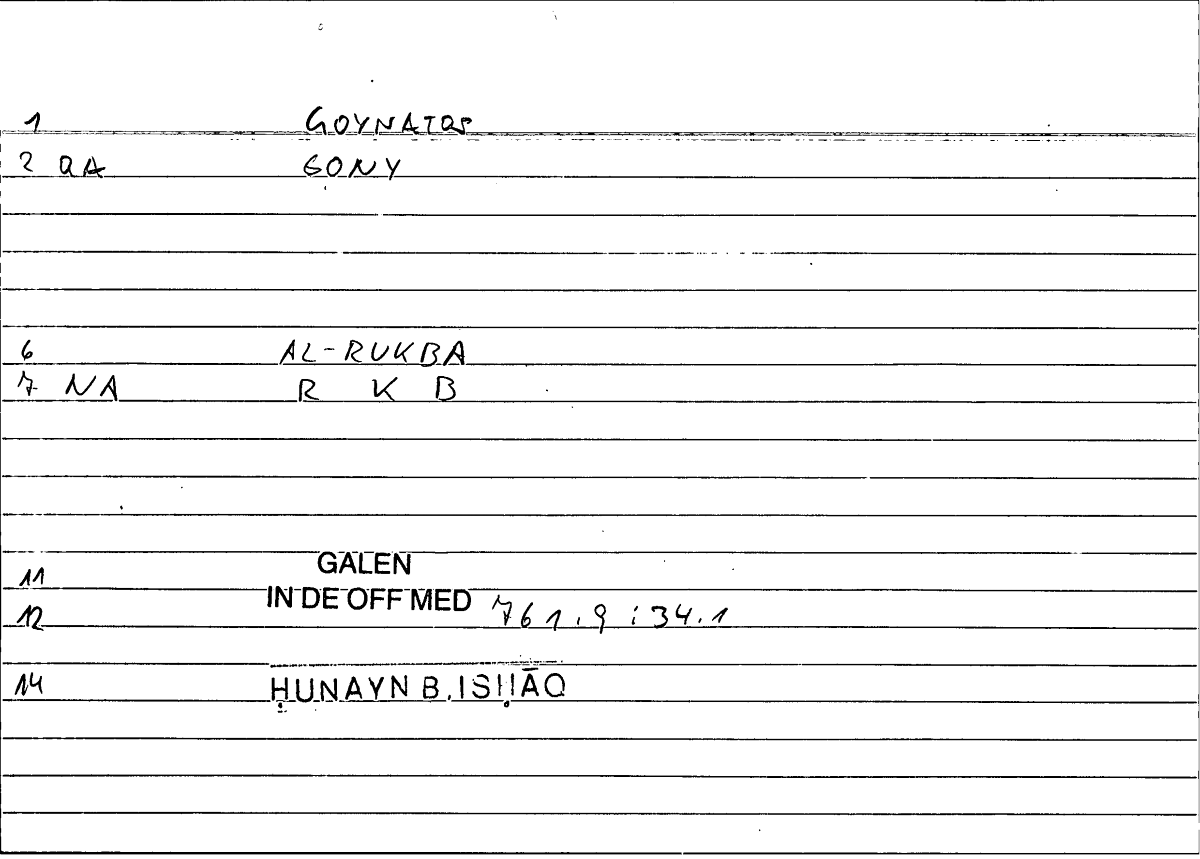 1 GOYNATOS
2 QA GONY
6 AL-RUKBA
7 NA R K B
11 GALEN
12 IN DE OFF MED 761.9 : 34.1
14 ḤUNAYN B. ISḤĀQ